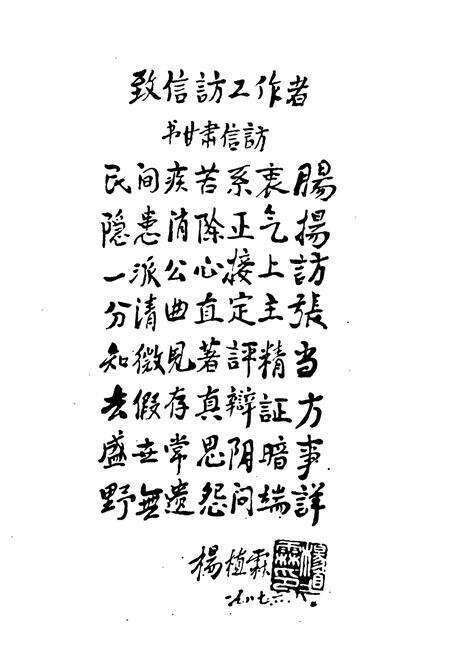 致信訪工作者
书甘肃信訪
民间疾苦系衷腸
隐患消除正气揚
一派公心接上訪
分清曲直定主張
知微见著評精当
去假存真辯証方
盛世常思阴暗事
野無遗怨问端詳
楊植霖
一九八七.六.